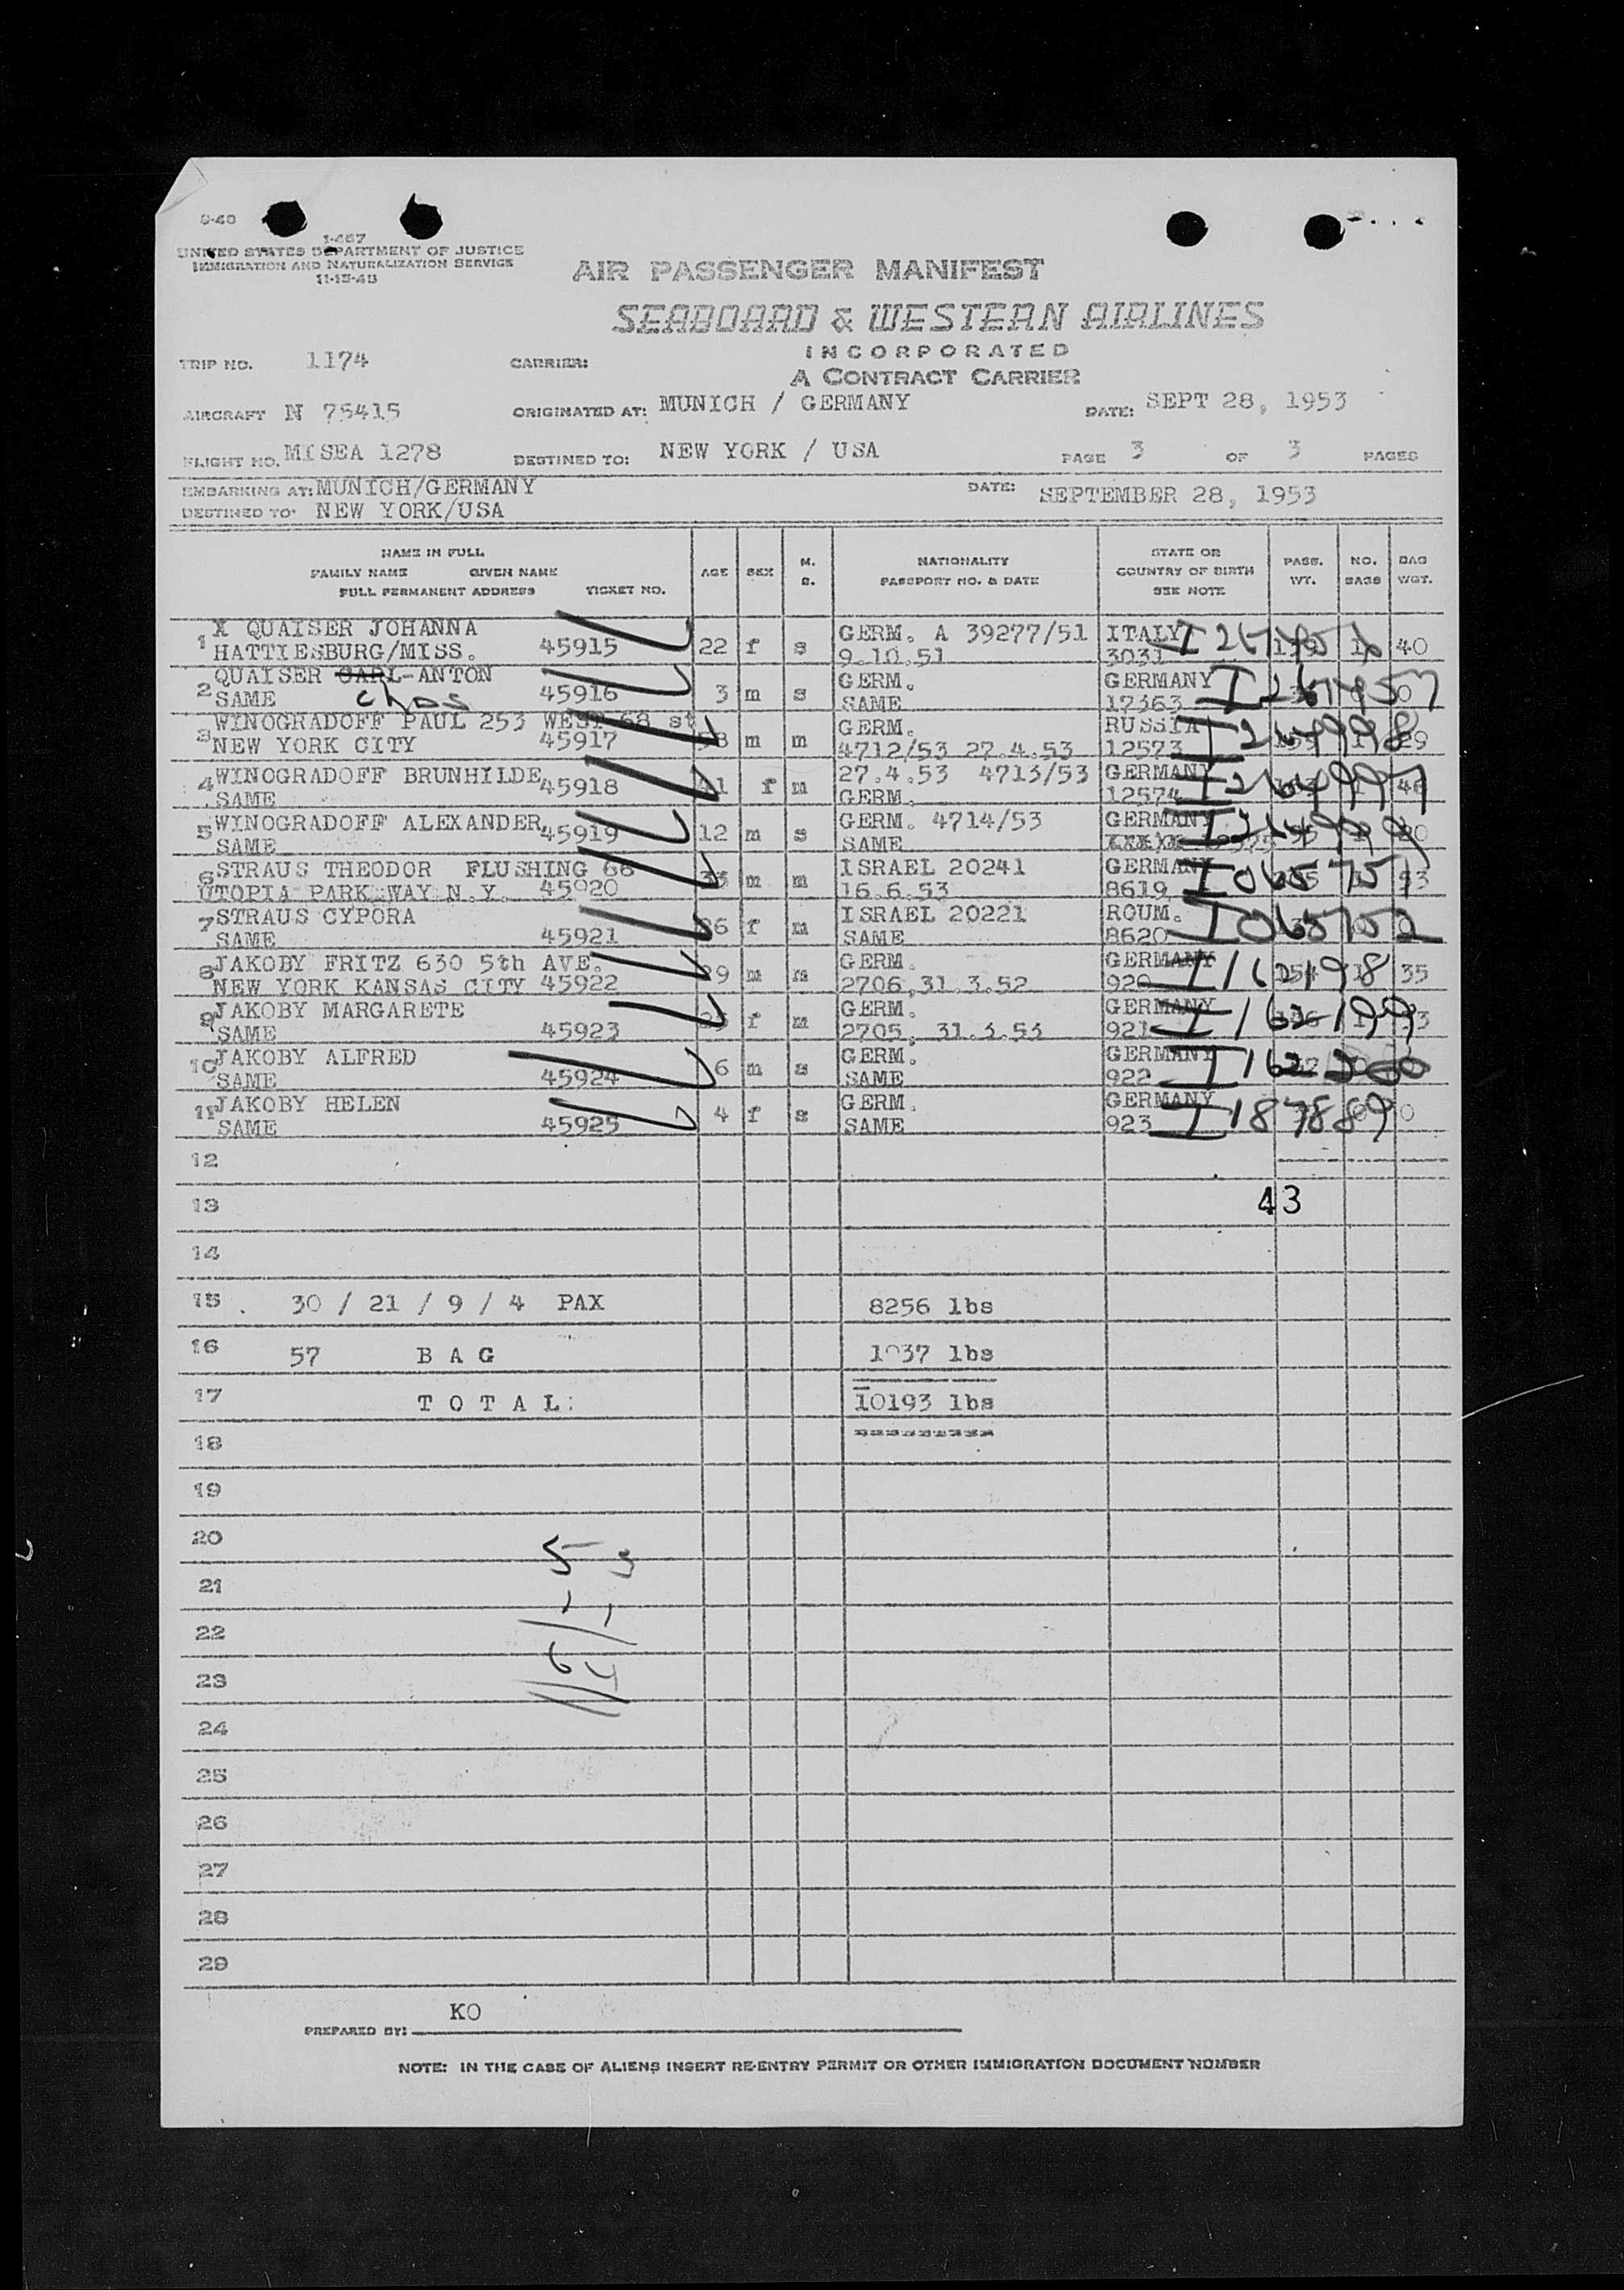 I-467
UNITED STATES DEPARTMENT OF JUSTICE
IMMIGRATION AND NATURALIZATION SERVICE
AIR PASSENGER MANIFEST
SEABOARD & WESTERN AIRLINES
INCORPORATED
A CONTRACT CARRIER
TRIP NO. 1174 CARRIER:
AIRCRAFT N 75415 ORIGINATED AT: MUNICH / GERMANY DATE: SEPT 28, 1953
FLIGHT NO. MISEA 1278 DESTINED TO: NEW YORK / USA PAGE 3 OF 3 PAGES
EMBARKING AT: MUNICH/GERMANY DATE: SEPTEMBER 28, 1953
DESTINED TO: NEW YORK/USA
NAME IN FULL
FAMILY NAME GIVEN NAME
FULL PERMANENT ADDRESS TICKET NO. AGE SEX M. S. NATIONALITY PASSPORT NO. & DATE STATE OR COUNTRY OF BIRTH SEE NOTE PASS. WT. NO. BAGS BAG WGT.
1 X QUAISER JOHANNA GERM. A 39277/51 ITALY
HATTIESBURG/MISS. 45915 22 f s 9.10.51 3031 40
2 QUAISER CARL-ANTON GERM. GERMANY
SAME chas 45916 3 m s SAME 17363 0
3 WINOGRADOFF PAUL 253 WEST 68 st GERM. RUSSIA
NEW YORK CITY 45917 m m 4712/53 27.4.53 12573
4 WINOGRADOFF BRUNHILDE 27.4.53 4713/53 GERMANY
SAME 45918 f m GERM. 12574
5 WINOGRADOFF ALEXANDER GERM. 4714/53 GERMANY
SAME 45919 12 m s SAME
6 STRAUS THEODOR FLUSHING 68 ISRAEL 20241 GERMANY
UTOPIA PARK WAY N.Y. 45920 m m 16.6.53 8619
7 STRAUS CYPORA ISRAEL 20221 ROUM.
SAME 45921 f m SAME 8620
8 JAKOBY FRITZ 630 5th AVE. GERM. GERMANY
NEW YORK KANSAS CITY 45922 m m 2706,31.3.52 920 I162198 35
9 JAKOBY MARGARETE GERM. GERMANY
SAME 45923 f m 2705, 31.3.53 921 I162199
10 JAKOBY ALFRED GERM. GERMANY
SAME 45924 6 m s SAME 922
11 JAKOBY HELEN GERM. GERMANY
SAME 45925 4 f s SAME 923 I187889 0
12
13 43
14
15 30 / 21 / 9 / 4 PAX 8256 lbs
16 57 BAG
17 TOTAL: 10193 lbs
18
19
20
21
22
23
24
25
26
27
28
29
PREPARED BY: KO
NOTE: IN THE CASE OF ALIENS INSERT RE-ENTRY PERMIT OR OTHER IMMIGRATION DOCUMENT NUMBER